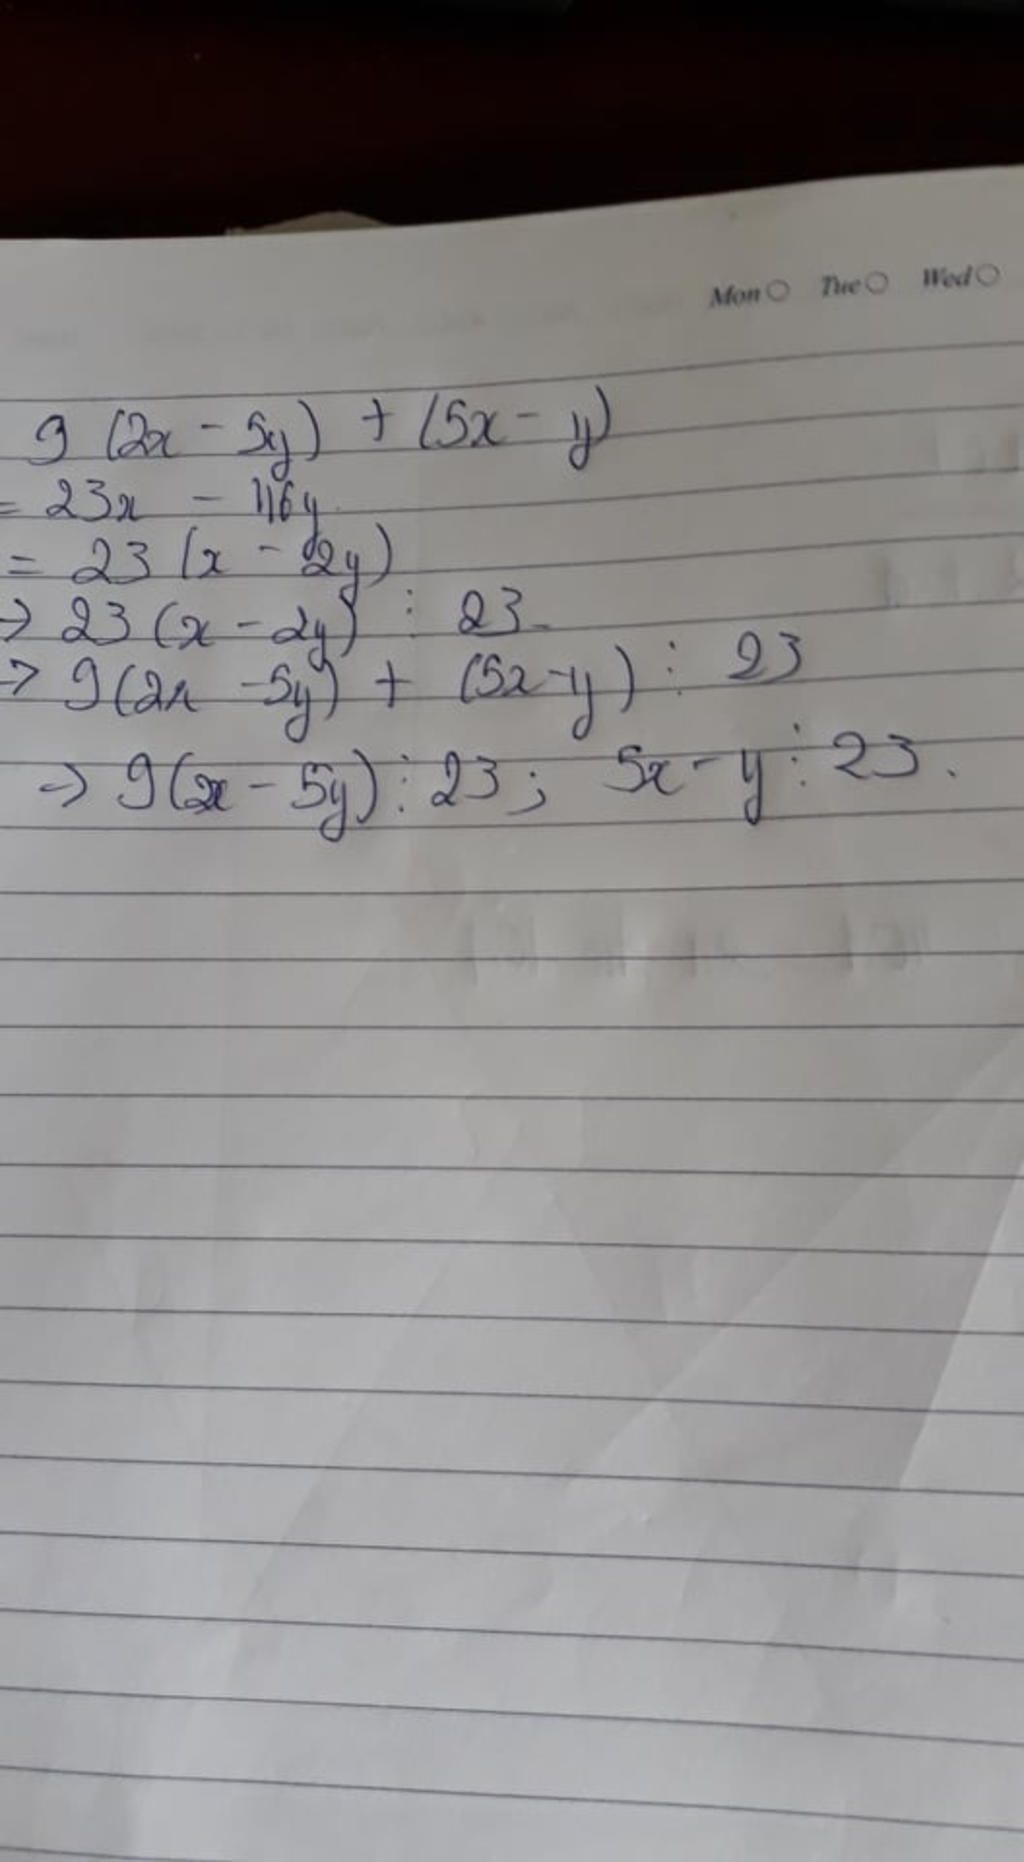 Mon Tue Wed
9 (2x - 5y) + (5x - y)
= 23x - 46y
= 23 (x - 2y)
→ 23 (x - 2y) ⋮ 23
→ 9(2x - 5y) + (5x - y) ⋮ 23
→ 9(2x - 5y) ⋮ 23; 5x - y ⋮ 23.